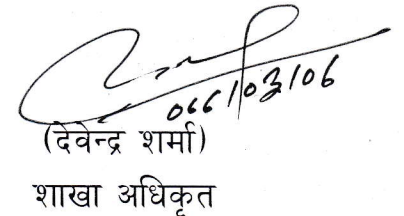 066/03/06
(देवेन्द्र शर्मा)
शाखा अधिकृत